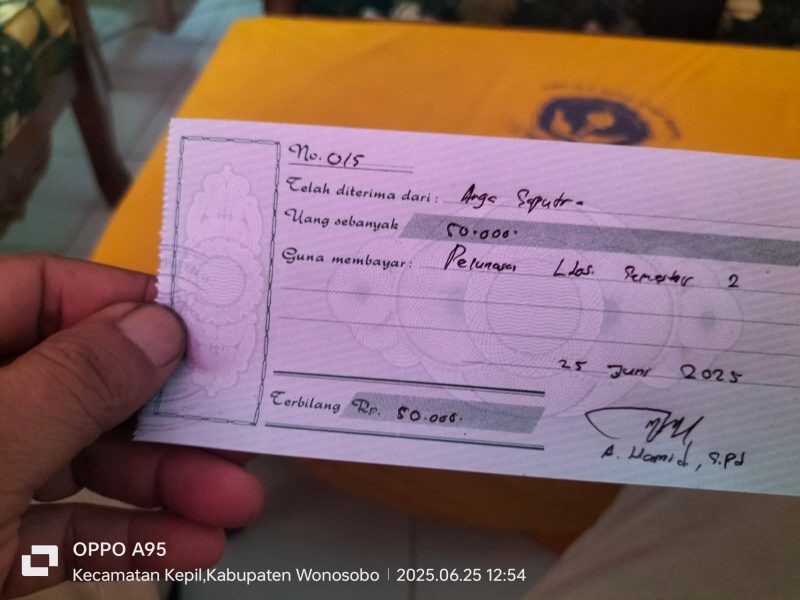 No. 015
Telah diterima dari: Arga Saputra
Uang sebanyak 50.000.
Guna membayar: Pelunasan Ldas. Semester 2
25 Juni 2025
Terbilang Rp. 50.000.
A. Hamid, S.Pd
OPPO A95
Kecamatan Kepil,Kabupaten Wonosobo 2025.06.25 12:54